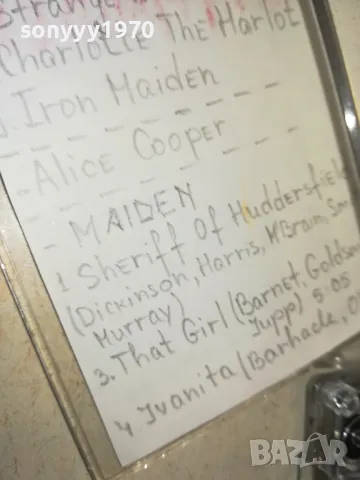 sonyyy1970
Strange
Charlotte The Harlot
Iron Maiden
- Alice Cooper
- MAIDEN
1 Sheriff Of Huddersfield
(Dickinson, Harris, McBrain, Sm
Murray)
3. That Girl (Barnet, Goldsw
Jupp) 5:05
4 Juanita (Barhack,
BAZAR
bg